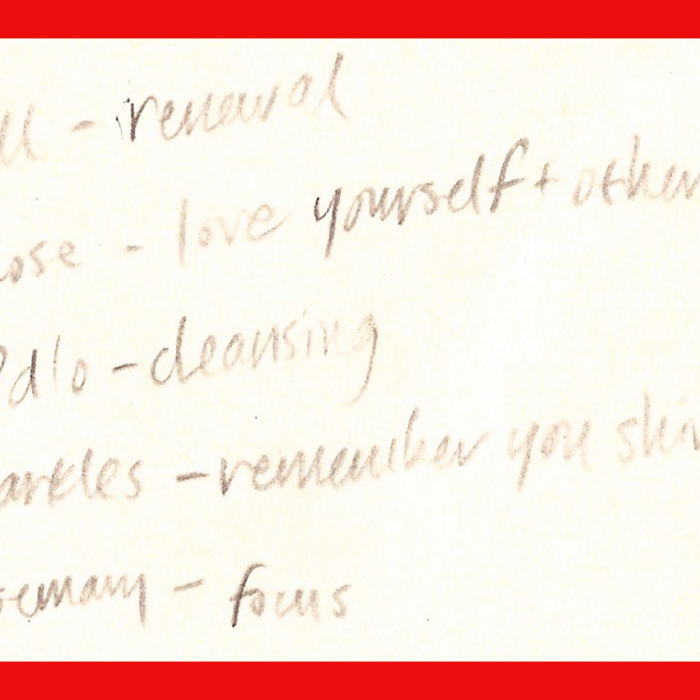 - renewal
ose - love yourself + other
- cleansing
arkles - remember you shin
semary - focus